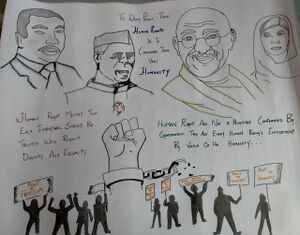 To Deny People Their
Human Rights
Is To
Challenge Their
Very
Humanity
Human Right Means That
Each Individual Should Be
Treated With Respect
Dignity And Equality
Human Right Are Not A Privilege Conferred By
Government They Are Every Human Being's Entitlement
By Virtue Of His Humanity...